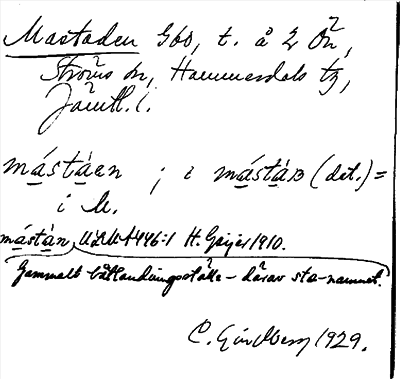 Mastaden Gbo, t. å 2 Ön,
Ströms sn, Hammerdals tg,
Jämtl. l.
mástáen ; i mástáʙ (det.) =
i M.
mástán, ULMA 446:1 H. Geijer 1910.
Gammalt båtlandningsställe – därav sta-namnet.
C. Gårdberg 1929.